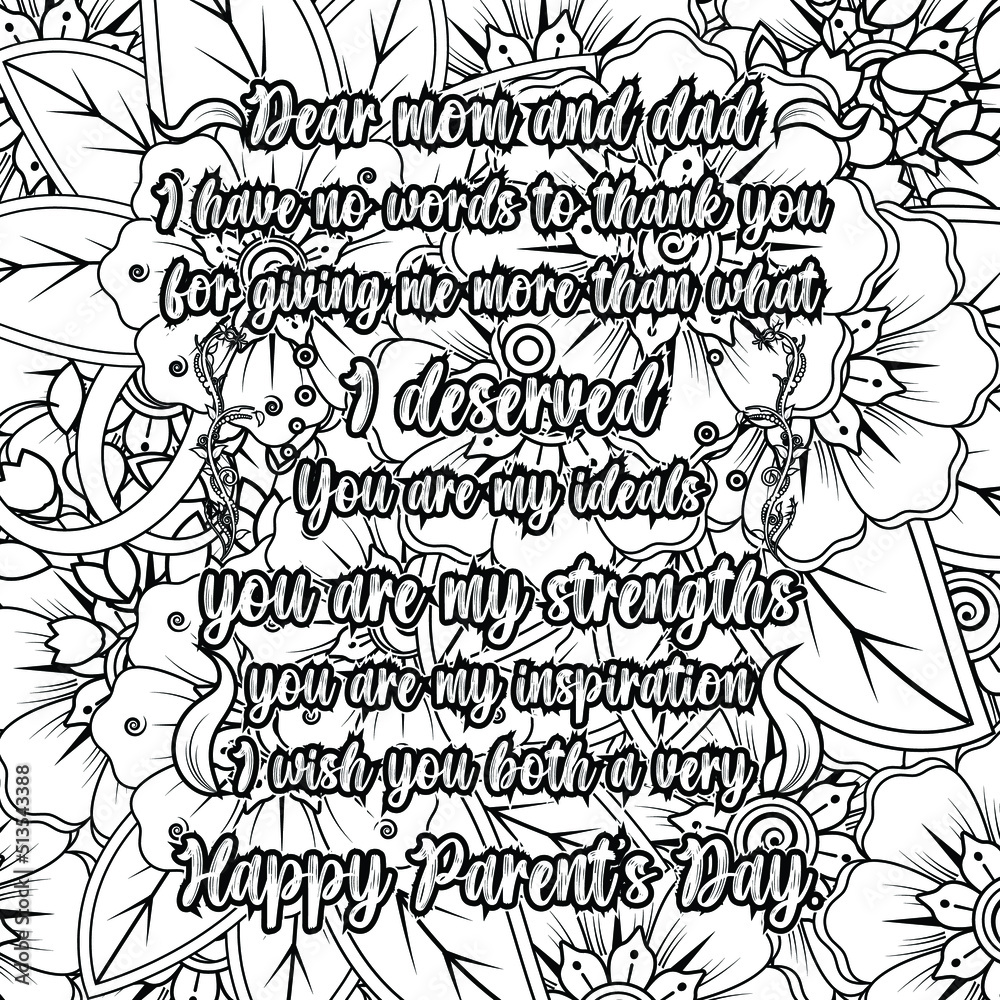 Dear mom and dad
I have no words to thank you
for giving me more than what
I deserved
You are my ideals
you are my strengths
you are my inspiration
I wish you both a very
Happy Parent's Day.
Adobe Stock | #513543388